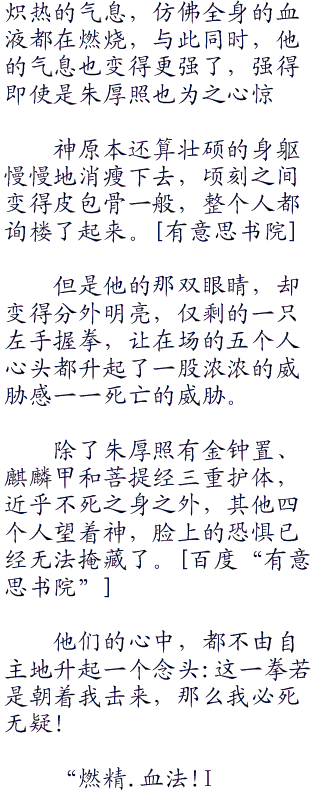 炽热的气息，仿佛全身的血
液都在燃烧，与此同时，他
的气息也变得更强了，强得
即使是朱厚照也为之心惊
神原本还算壮硕的身躯
慢慢地消瘦下去，顷刻之间
变得皮包骨一般，整个人都
询楼了起来。[有意思书院]
但是他的那双眼睛，却
变得分外明亮，仅剩的一只
左手握拳，让在场的五个人
心头都升起了一股浓浓的威
胁感一一死亡的威胁。
除了朱厚照有金钟置、
麒麟甲和菩提经三重护体，
近乎不死之身之外，其他四
个人望着神，脸上的恐惧已
经无法掩藏了。[百度“有意
思书院”]
他们的心中，都不由自
主地升起一个念头:这一拳若
是朝着我击来，那么我必死
无疑!
“燃精.血法!I